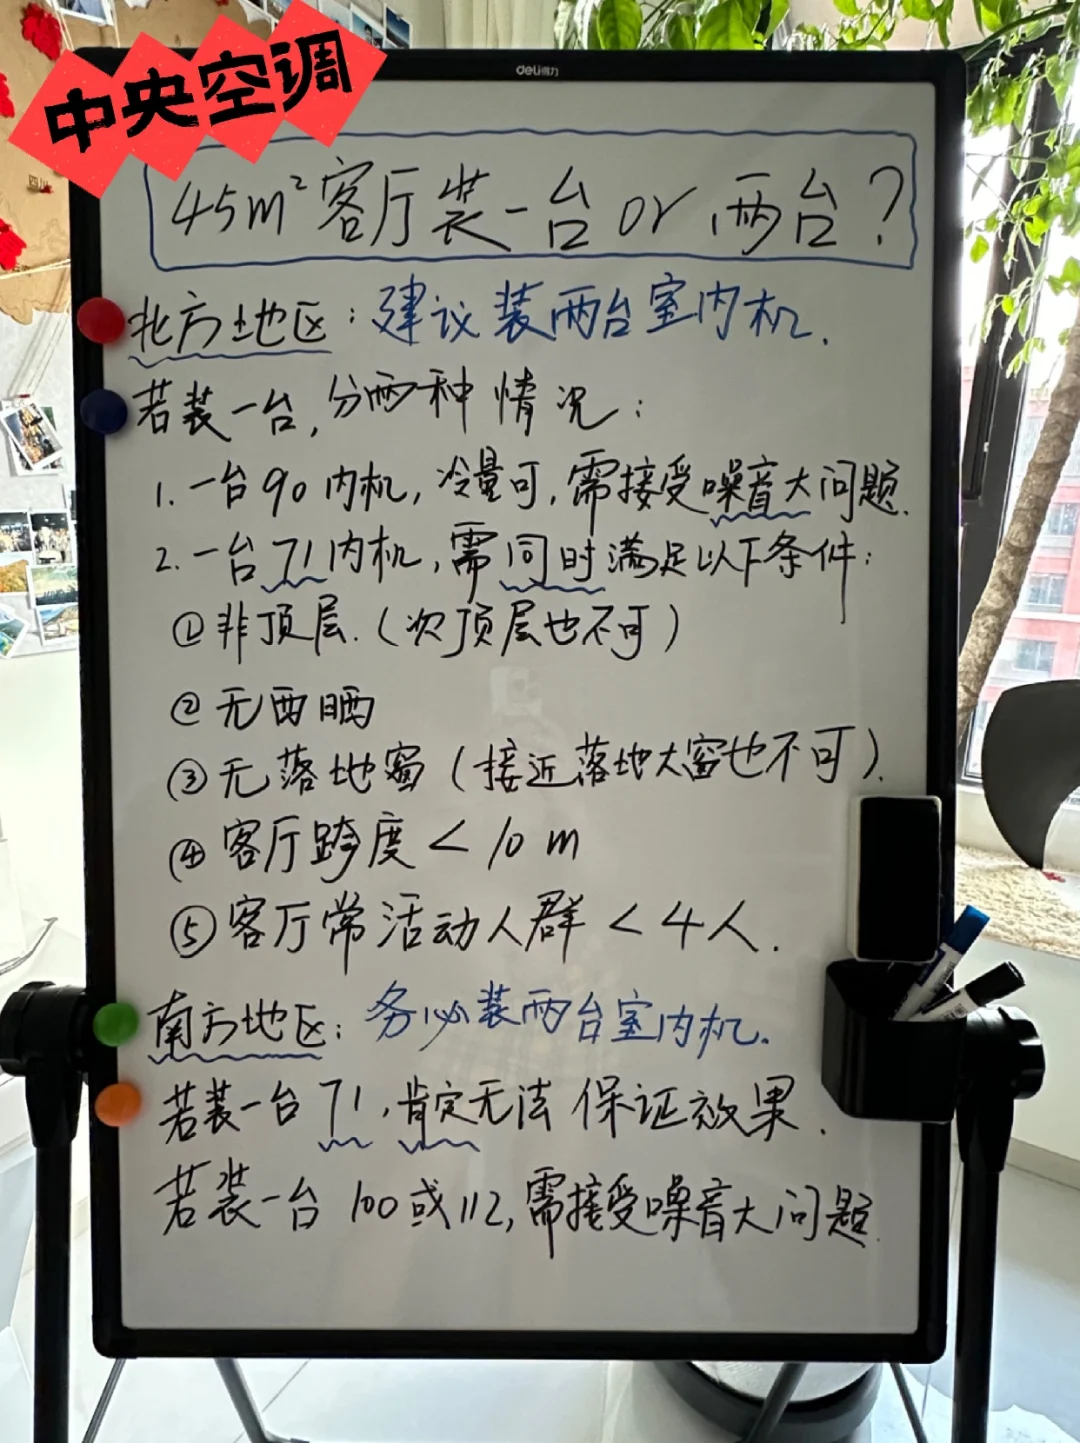 中央空调
deli得力
45m²客厅装一台or两台？
北方地区：建议装两台室内机.
若装一台,分两种情况：
1.一台90内机,冷量可,需接受噪音大问题.
2.一台71内机,需同时满足以下条件：
①非顶层.（次顶层也不可）
②无西晒
③无落地窗（接近落地大窗也不可）.
④客厅跨度<10m
⑤客厅常活动人群<4人.
南方地区：务必装两台室内机.
若装一台71,肯定无法保证效果.
若装一台100或112,需接受噪音大问题.